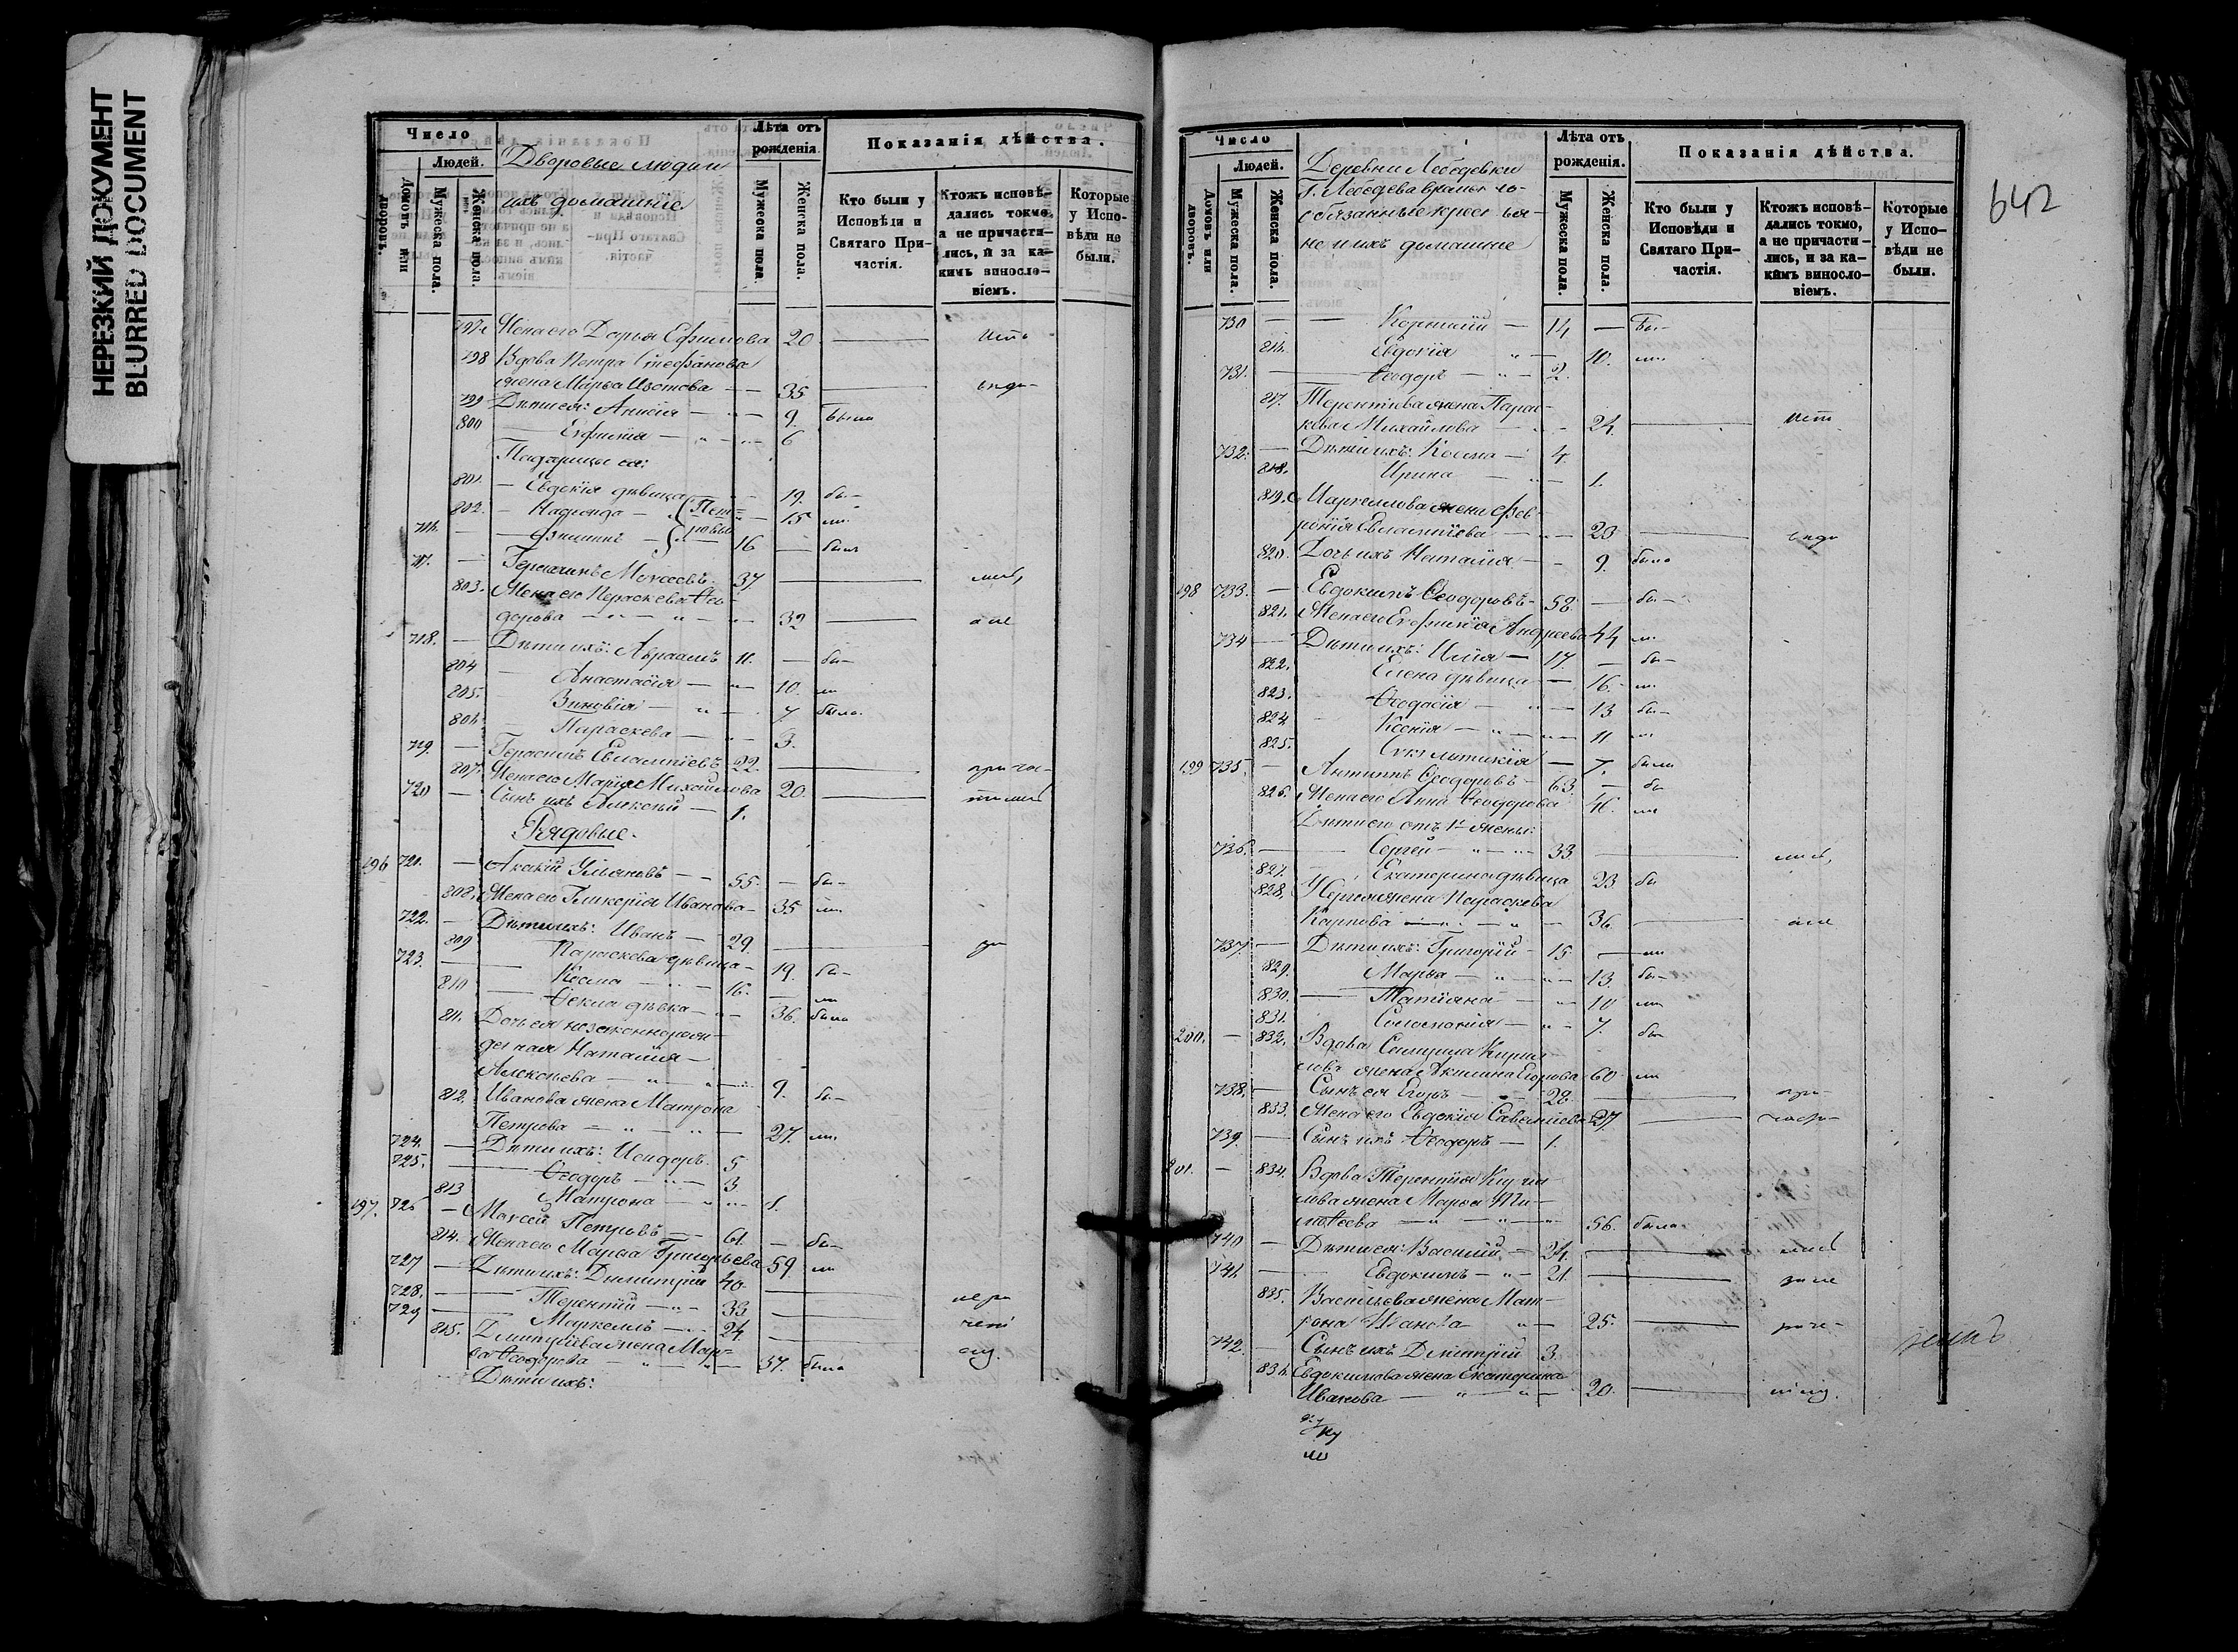 НЕРЕЗКИЙ ДОКУМЕНТ
BLURRED DOCUMENT
Число
Людей.
Домовъ или дворовъ.
Мужеска пола.
Женска пола.
Дворовые люди и
ихъ домашніе
Лѣта отъ рожденія.
Мужеска пола.
Женска пола.
Показанія дѣйства.
Кто были у Исповѣди и Святаго Причастія.
Ктожъ исповѣдались токмо, а не причастились, и за какимъ винословіемъ.
Которые у Исповѣди не были.
797 Жена его Дарья Ефимова 20
798 Вдова Петра Стефанова
жена Марья Изотова 35
799 Дѣти ея: Анисія 9. была
800 Евфимія 6
Падчерицы ея:
801. Евдокія дѣвица 19. бы-
802. Надежда 15 ли.
716. Филиппъ 16 былъ
717. Герасимъ Моисеевъ 37
803. Жена его Параскева Ѳео-
дорова 32
718. Дѣти ихъ: Авраамъ 11. бы-
804 Анастасія 10. ли
805. Зиновія 7 была
806. Параскева 3.
719. Герасимъ Евлампіевъ 22
807. Жена его Марія Михайлова 20.
720 Сынъ ихъ Алексѣй 1.
Рядовые.
196 721. Акакій Ульяновъ 55. бы-
808. Жена его Гликерія Иванова 35 ли
722. Дѣти ихъ: Иванъ 29.
809 Параскева дѣвица 19. бы-
723. Косма 16. ли
810 Ѳекла дѣвка 36. была
811. Дочь ея незаконнорож-
денная Наталія
Алексѣева 9. бы-
812. Иванова жена Матрона
Петрова 27. ли.
724. Дѣти ихъ: Исидоръ 5
725. Ѳеодоръ 3.
813 Матрона 1.
197. 726 Моисей Петровъ 61. бы-
814. Жена его Марья Григорьева 59. ли
727 Дѣти ихъ: Димитрій 40
728. Терентій 33
729 Маркеллъ 24.
815. Димитріева жена Мар-
ѳа Ѳеодорова 37. была
Дѣти ихъ:
642
Число
Людей.
Домовъ или дворовъ.
Мужеска пола.
Женска пола.
Деревни Лебедевки
Г. Лебедева временно-
обязанные крестья-
не и ихъ домашніе
Лѣта отъ рожденія.
Мужеска пола.
Женска пола.
Показанія дѣйства.
Кто были у Исповѣди и Святаго Причастія.
Ктожъ исповѣдались токмо, а не причастились, и за какимъ винословіемъ.
Которые у Исповѣди не были.
730 Корнилій 14 Бы-
816. Евдокія 10. ли.
731. Ѳеодоръ 2.
817. Терентіева жена Парас-
кева Михайлова 24.
732. Дѣти ихъ: Косма 4.
818. Ирина 1.
819. Маркеллова жена Фев-
ронія Евлампіева 23
820. Дочь ихъ Наталія 9. была
198 733. Евдокимъ Ѳеодоровъ 58. бы-
821. Жена его Евфимія Андреева 44 ли
734 Дѣти ихъ: Илія 17. бы-
822. Елена дѣвица 16. ли.
823. Ѳеодосія 13 бы-
824. Ксенія 11 ли
825. Синклитикія 7. была
199 735. Антипъ Ѳеодоровъ 63. бы
826. Жена его Анна Ѳеодорова 46. ли
Дѣти его отъ 1й жены:
736. Сергей 33.
827. Екатерина дѣвица 23. бы
828. Сергея жена Параскева
Карпова 36.
737. Дѣти ихъ: Григорій 15 ли
829. Марѳа 13. бы-
830. Татіана 10 ли
831. Соломонія 7. бы
200. 832. Вдова Самуила Кирил-
лова жена Акилина Егорова 60. ли
738. Сынъ ея Егоръ 28.
833. Жена его Евдокія Савельева 27
739. Сынъ ихъ Ѳеодоръ 1.
201. 834. Вдова Терентія Кирил-
лова жена Марѳа Ти-
моѳеева 56. была
740 Дѣти ея: Василій 34.
741 Евдокимъ 21.
835. Васильева жена Мат-
рона Иванова 25.
742. Сынъ ихъ Дмитрій 3.
836. Евдокимова жена Екатерина
Иванова 20.